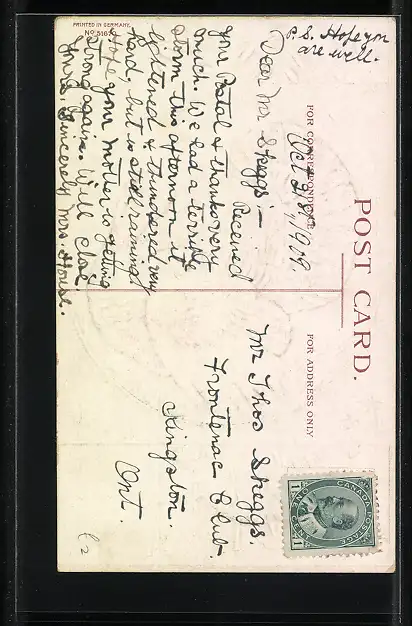 POST CARD.
FOR CORRESPONDENCE
FOR ADDRESS ONLY
P.S. Hope you
are well.
Oct 21st, 1909.
Dear Mr Skeggs:-
Received
your Postal & thanks very
much. We had a terrible
storm this afternoon it
lightened & thundered very
hard, but is still raining.
Hope your mother is getting
strong again. Will close
Yours Sincerely Mrs.
Mr Thos Skeggs.
Frontenac Club.
Kingston.
Ont.
CANADA POSTAGE
1 1
PRINTED IN GERMANY.